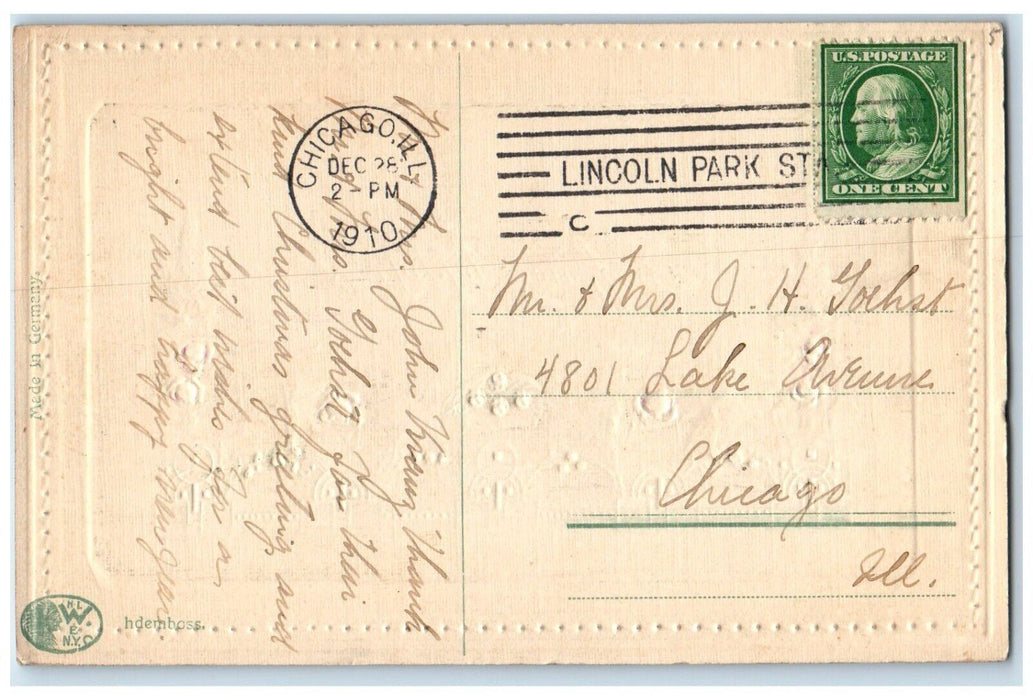 U.S.POSTAGE
ONE CENT
CHICAGO, ILL.
DEC 28
2 - PM
1910
LINCOLN PARK STA
C
Mr. & Mrs. J. H. Goehst
4801 Lake Avenue
Chicago
Ill.
Mrs. John thank
Mr. & Mrs. Goehst for their
kind Christmas greeting and
extend best wishes for a
bright and happy New Year
Made in Germany.
hdemboss.
H L
W.
E.
N.Y.
5